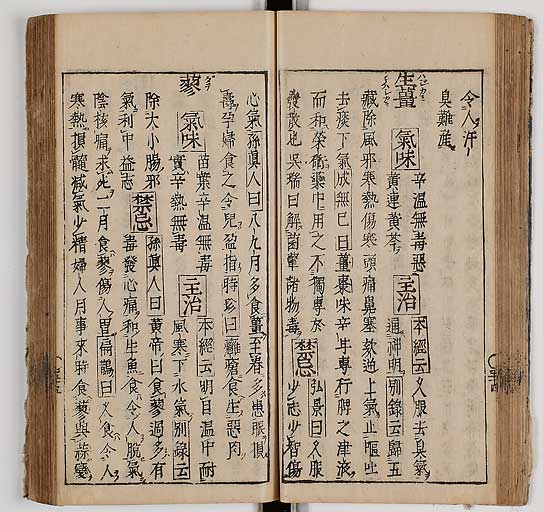 令人汗
臭難産
生薑
氣味 辛温無毒惡
黄連黄芩
主治 本經云久服去臭氣
通神明別錄云歸五
藏除風邪寒熱傷寒頭痛鼻塞欬逆上氣止嘔吐
去痰下氣成無已曰薑棗味辛甘專行脾之津液
而和榮衛藥中用之不獨專於
發散也吳瑞曰解菌蕈諸物毒
禁忌 弘景曰久服
少志少智傷
心氣孫真人曰八九月多食薑至春多患眼損
壽孕婦食之令兒盈指時珍曰癰瘡食生惡肉
蓼
氣味 苗葉辛温無毒
實辛熱無毒
主治 本經云明目温中耐
風寒下水氣別錄云
除大小腸邪
氣利中益志
禁忌 孫真人曰黄帝曰食蓼過多有
毒發心痛和生魚食令人脱氣
陰核痛求死二月食蓼傷人胃扁鵲曰久食令人
寒熱損髓减氣少精婦人月事來時食蓼與蒜變